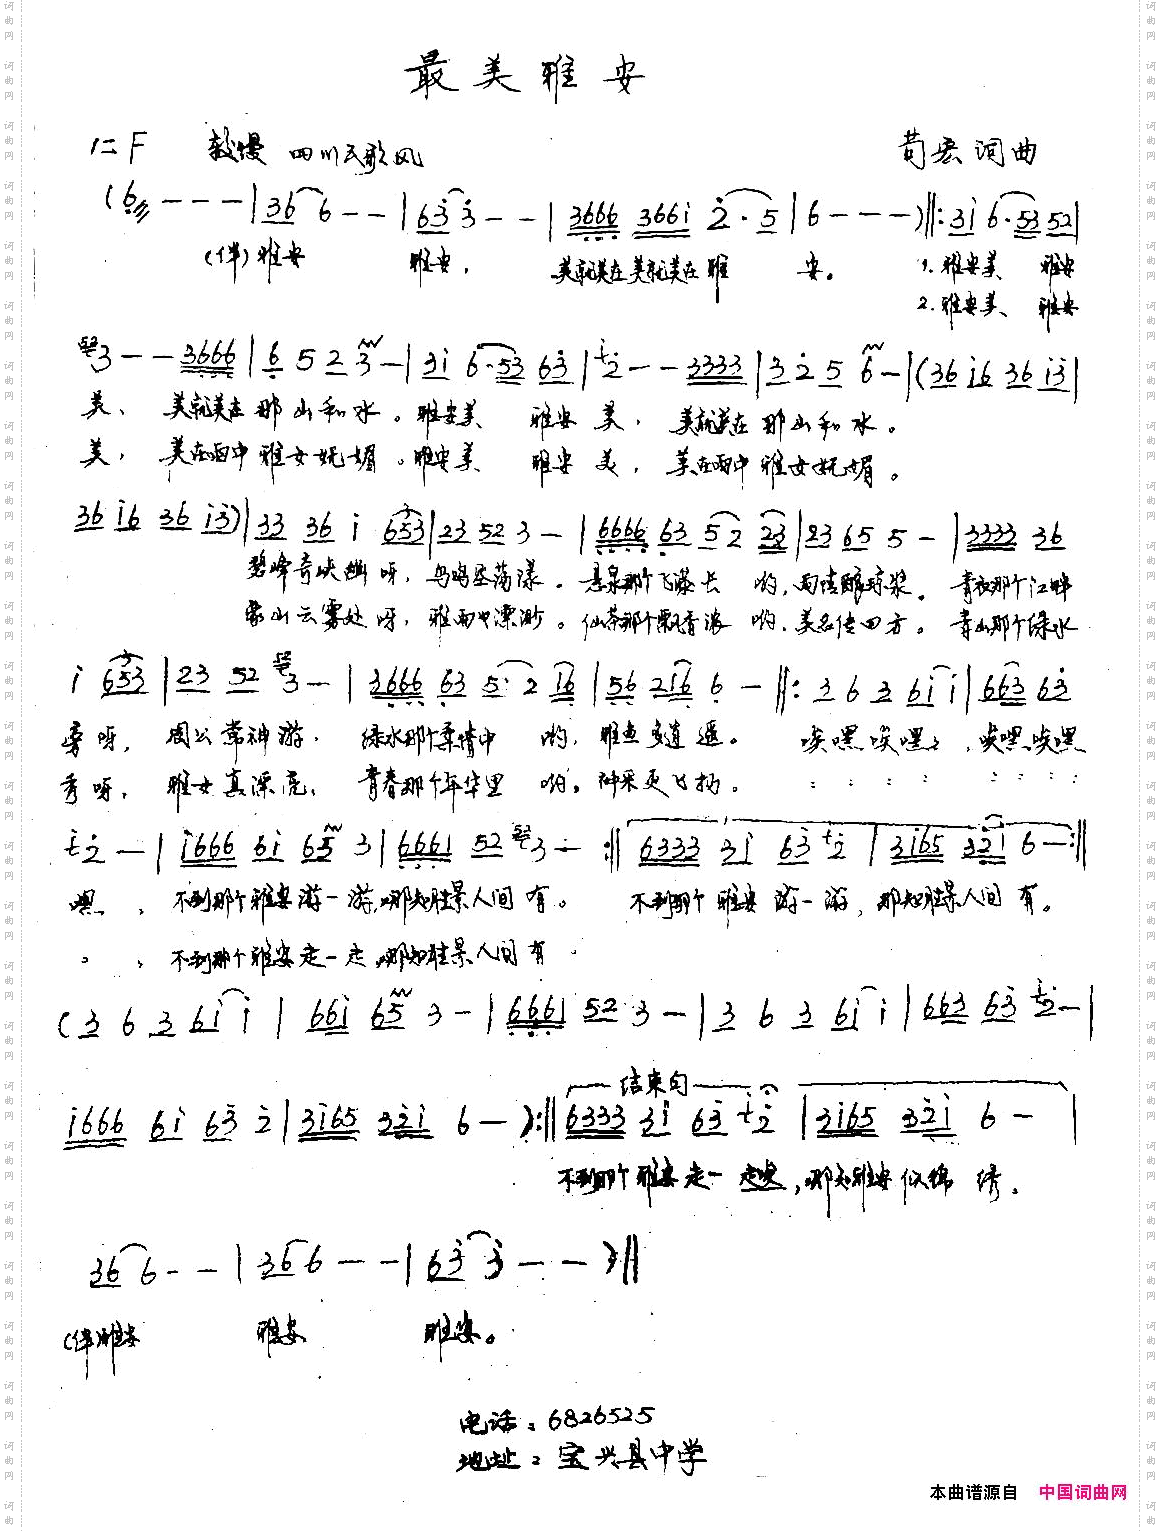 最美雅安
1=F 较慢 四川民歌风 苟宏词曲
(6 - - - | 36 6 - - | 63 3 - - | 3666 366i 2· 5 | 6 - - - ) ‖: 3i 6·53 52 |
(伴)雅安 雅安, 美就美在美就美在雅 安。 1.雅安美、 雅安
2.雅安美、 雅安
3 - - 3666 | 6 5 2 3 - | 3i 6·53 63 | 2 - - 3333 | 3 2 5 6 - | (36 i6 36 i3 |
美、 美就美在那山和水。雅安美 雅安美, 美就美在那山和水。
美, 美在雨中雅女妩媚。雅安美 雅安美, 美在雨中雅女妩媚。
36 i6 36 i3) | 33 36 i 653 | 23 52 3 - | 6666 63 5 2 23 | 23 65 5 - | 3333 36
碧峰奇峡幽呀,鸟鸣坠荡漾。悬泉那个飞瀑长 哟,雨清醇琼浆。青衣那个江畔
蒙山云雾处呀,雅雨也漂渺。仙茶那个飘香浓 哟,美名传四方。青山那个绿水
i 653 | 23 52 3 - | 3666 63 5· 2 16 | 56 216 6 - ‖: 3 6 3 6i i | 663 63
旁呀, 周公常神游, 绿水那个柔情中 哟, 雅鱼多逍遥。 唉嘿唉嘿 , 唉嘿唉嘿
秀呀, 雅女真漂亮, 青春那个年华里 哟,神采更飞扬。
2 - | i666 6i 65 3 | 6661 52 3 - :‖ 6333 3i 63 2 | 3i65 32i 6 - :‖
嘿 , 不到那个雅安游一游,哪知胜景人间有。 不到那个雅安游一游,那知胜景人间 有。
。 , 不到那个雅安走一走,哪知胜景人间有
(3 6 3 6i i | 66i 65 3 - | 6661 52 3 - | 3 6 3 6i i | 663 63 2 - |
结束句
i666 6i 63 2 | 3i65 32i 6 - ):‖ 6333 3i 63 2 | 3i65 32i 6 - |
不到那个雅安走一走哎,哪知雅安似锦绣。
36 6 - - | 36 6 - - | 63 3 - - )‖
(伴)雅安 雅安 雅安。
电话:6826525
地址:宝兴县中学
本曲谱源自 中国词曲网